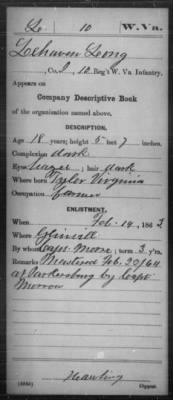 L 10 W. Va.
Lehaven Long
, Co. I, 10 Reg't W. Va. Infantry.
Appears on
Company Descriptive Book
of the organization named above.
DESCRIPTION.
Age 18 years; height 5 feet 7 inches.
Complexion dark
Eyes ; hair dark
Where born Tyler Virginia
Occupation farmer
ENLISTMENT.
When Feb. 14, 186
Where Glinvill
By whom Capt. Moore; term 3 y'rs.
Remarks Mustered Feb. 20/64
at Parkersburg by Capt
Morrow
Copyist.